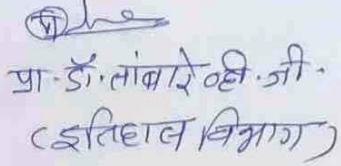 प्रा. डॉ. तांबारे व्ही. जी.
(इतिहास विभाग)